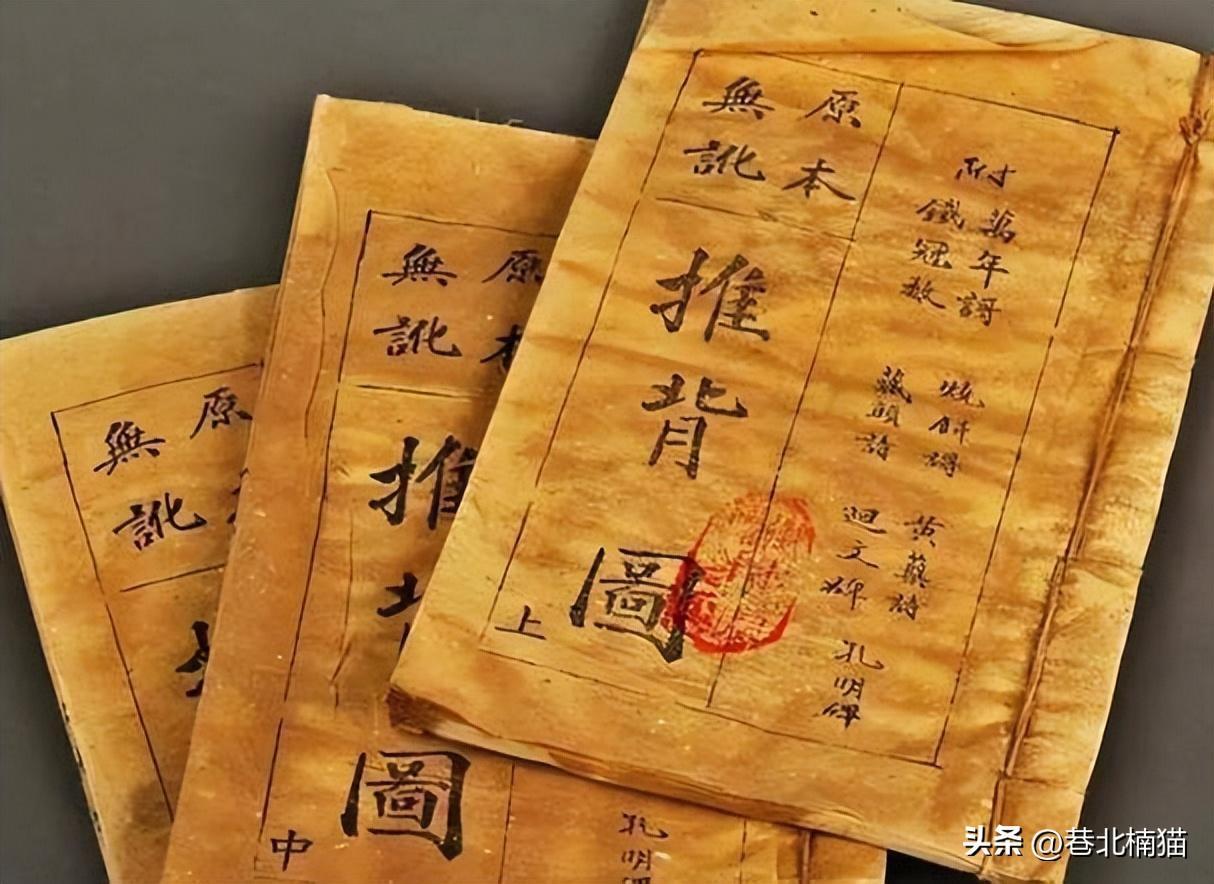 附
萬年謌
鐵冠數
燒餅謌
藏頭詩
黃蘗詩
迴文碑
孔明碑
原本
無訛
推背圖
上
原本
無訛
推
圖
中
孔明
原
無訛
头条 @巷北楠猫